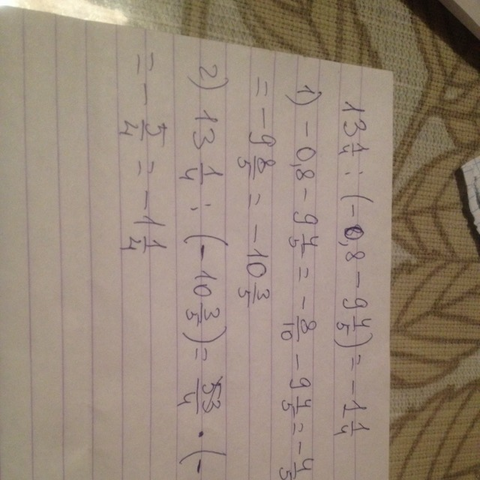 13 1/4 : (-0,8 - 9 4/5) = -1 1/4
1) -0,8 - 9 4/5 = - 8/10 - 9 4/5 = - 4/5
= -9 8/5 = -10 3/5
2) 13 1/4 : (-10 3/5) = 53/4 · (-
= - 5/4 = -1 1/4